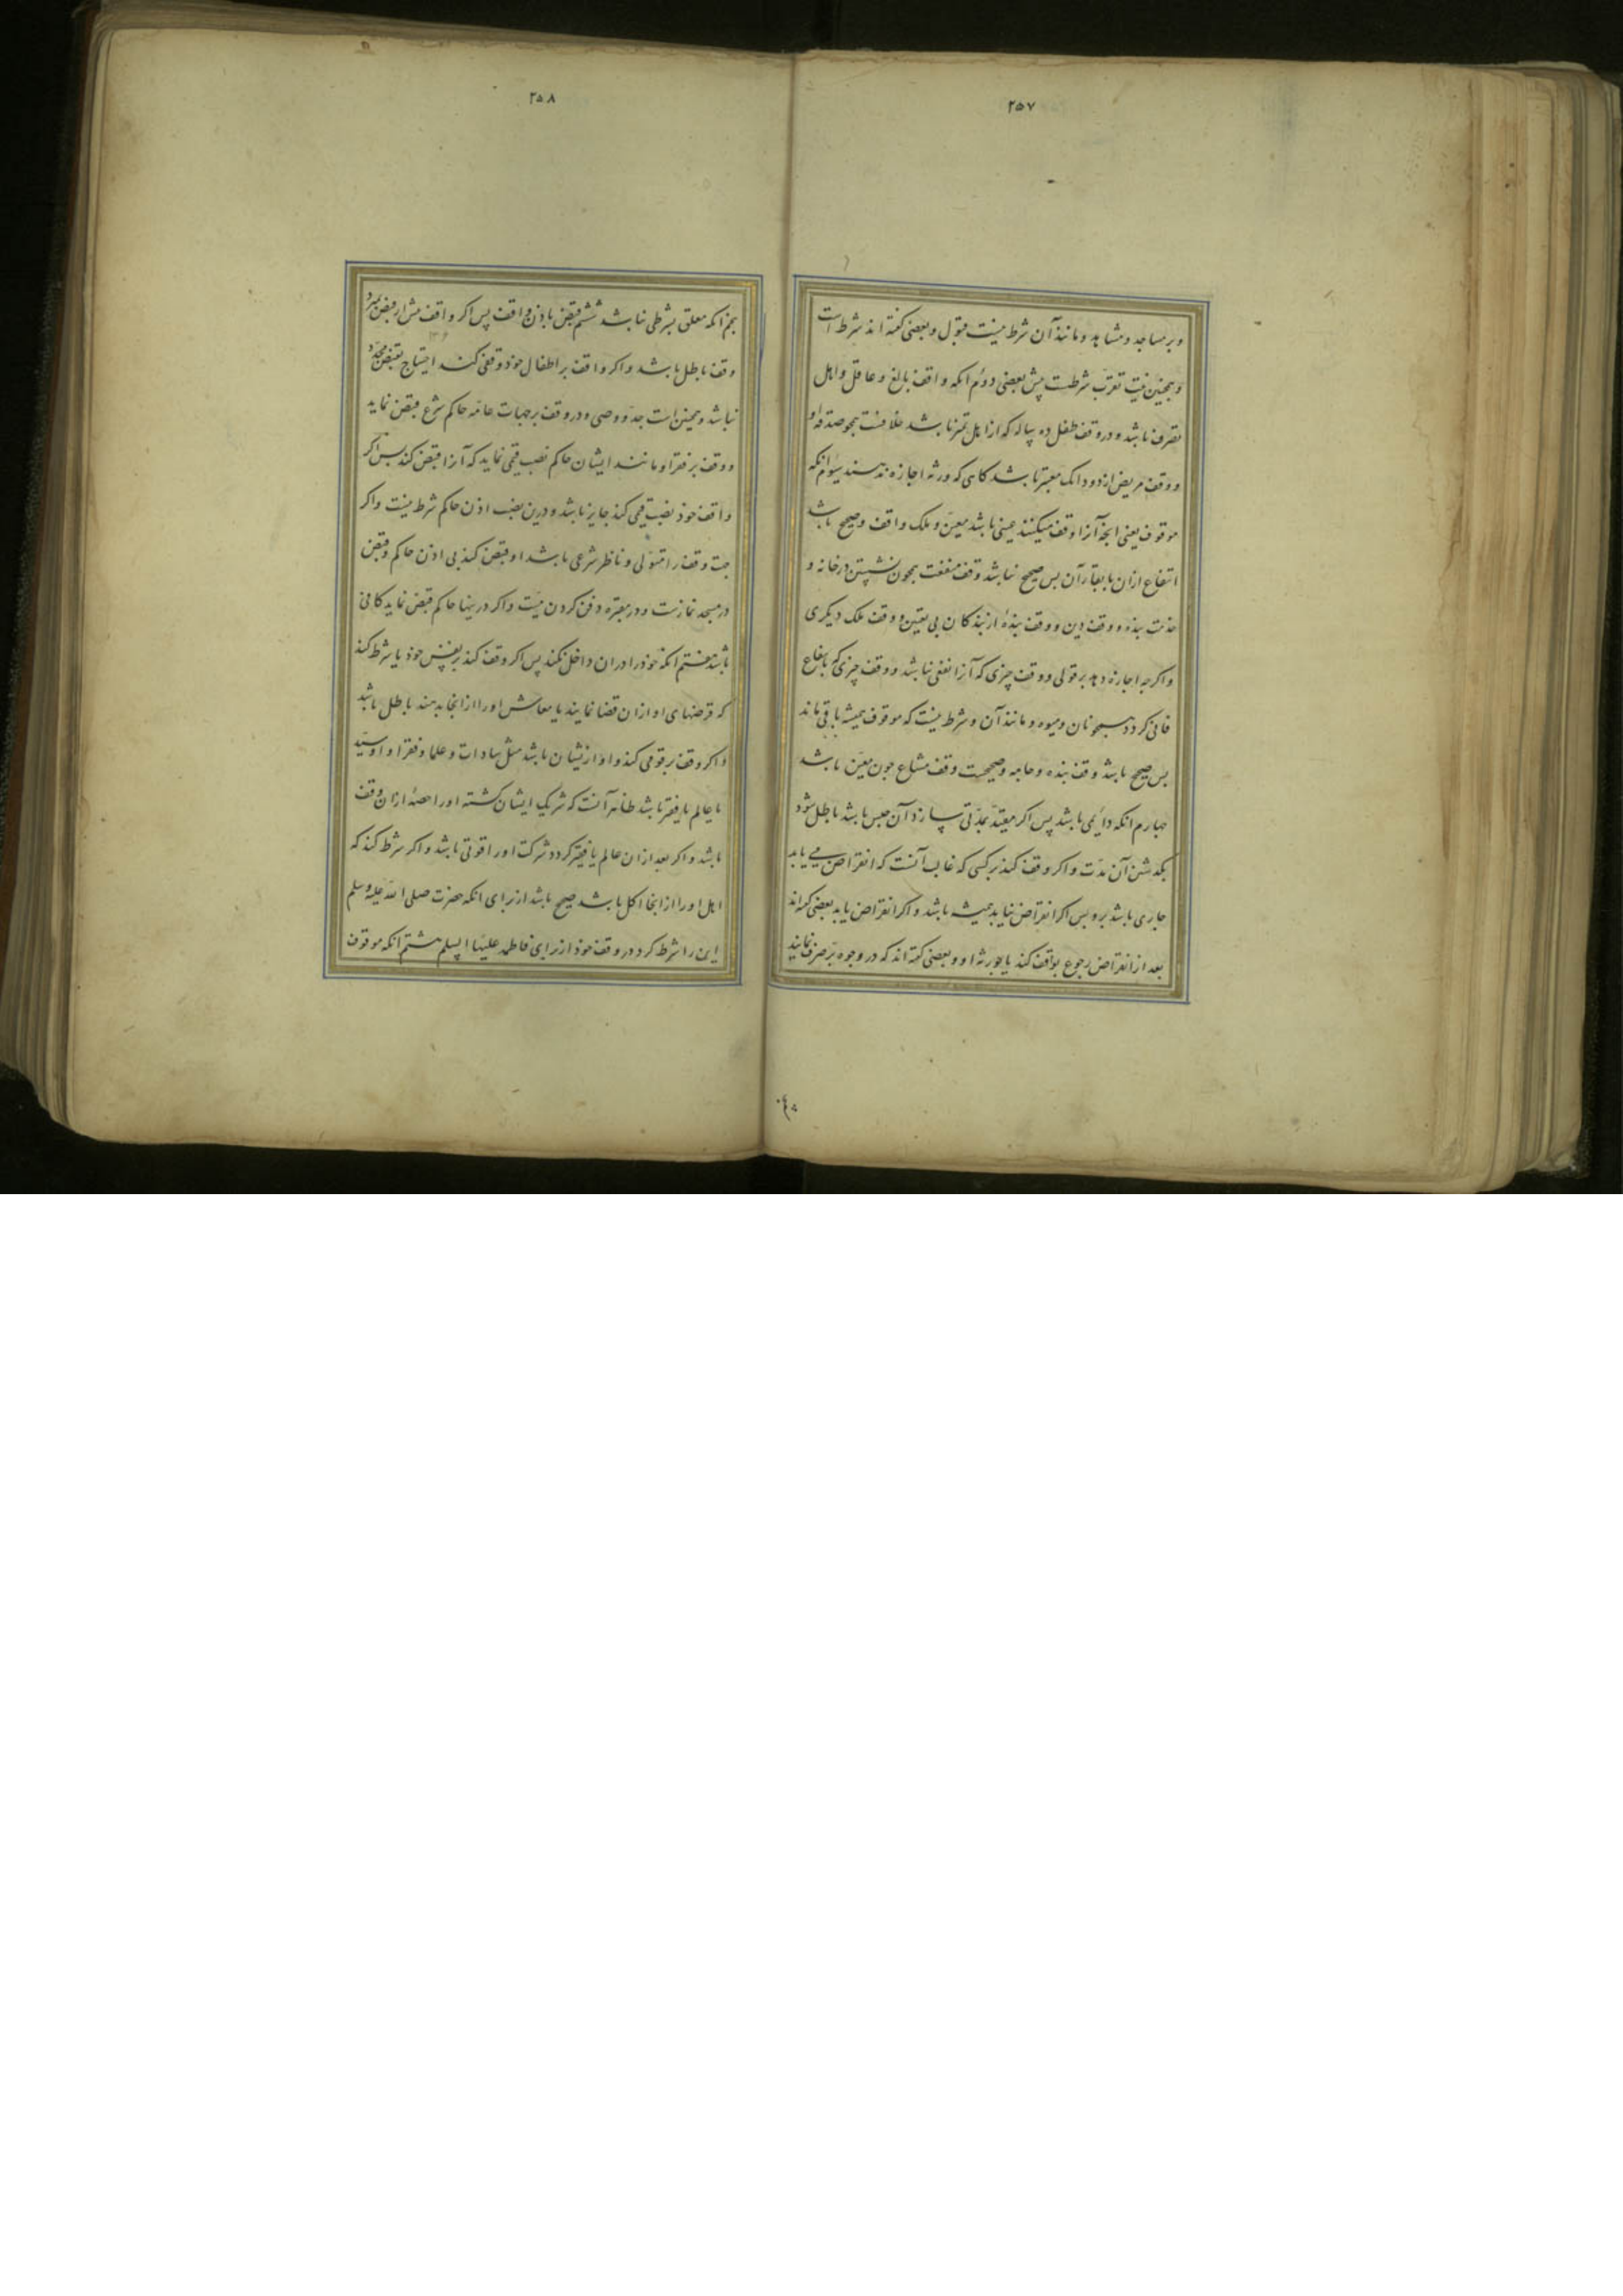 ۲۵۷
و بر مساجد و مشاهد و مانند آن شرط نیست قبول و بعضی کفته اند شرط است
و همچنین نیت تقرب شرطست پیش بعضی دوم انکه واقف بالغ و عاقل و اهل
تصرف باشد و در وقف طفل ده ساله که از اهل تمیز باشد خلافست همچو صدقه او
و وقف مریض از دو دانک معتبر باشد کاهی که ورثه اجازه ندهند سیوم انکه
موقوف یعنی انچه آنرا وقف میکنند عینی باشد معین و ملک واقف و صحیح باشد
انتفاع ازان با بقاء آن پس صحیح نباشد وقف منفعت همچون نشستن در خانه و
خدمت بنده و وقف دین و وقف بنده از بندکان بی تعیین و وقف ملک دیکری
و اکرچه اجازه دهد بر قولی و وقف چیزی که آنرا نفعی نباشد و وقف چیزی که بانتفاع
فانی کردد همچو نان و میوه و مانند آن و شرط نیست که موقوف همیشه باقی ماند
پس صحیح باشد وقف بنده و جامه و صحیحست وقف مشاع چون معین باشد
چهارم انکه دایمی باشد پس اکر مقید بمدتی سازد آن حبس باشد باطل شود
بکذشتن آن مدت و اکر وقف کند بر کسی که غالب آنست که انقراض می یابد
جاری باشد برو پس اکر انقراض نیابد همیشه باشد و اکر انقراض یابد بعضی کفته اند
بعد از انقراض رجوع بواقف کند یا بورثه او و بعضی کفته اند که در وجوه بر صرف نمایند
۲۵۸
پنجم انکه معلق بشرطی نباشد ششم قبض باذن واقف پس اکر واقف پیش از قبض بمیرد
وقف باطل باشد و اکر واقف بر اطفال خود وقفی کند احتیاج بقبض مجدد
نباشد و همچنین است جد و وصی و در وقف بر جهات عامه حاکم شرع قبض نماید
و وقف بر فقرا و مانند ایشان حاکم نصب قیمی نماید که آنرا قبض کند پس اکر
واقف خود نصب قیمی کند جایز باشد و درین نصب اذن حاکم شرط نیست و اکر
جهت وقف را متولی و ناظر شرعی باشد او قبض کند بی اذن حاکم و قبض
در مسجد نمازست و در مقبره دفن کردن میت و اکر در ینها حاکم قبض نماید کافی
باشد هفتم انکه خود را دران داخل نکند پس اکر وقف کند بر نفس خود یا شرط کند
که قرضهای او ازان قضا نمایند یا معاش او را از انجا بدهند باطل باشد
و اکر وقف بر قومی کند و او ازیشان باشد مثل سادات و علما و فقرا و او سید
یا عالم یا فقیر باشد ظاهر آنست که شریک ایشان کشته او را حصۀ ازان وقف
باشد و اکر بعد ازان عالم یا فقیر کردد شرکت او را قوتی باشد و اکر شرط کند که
اهل او را از انجا اکل باشد صحیح باشد از برای انکه حضرت صلی الله علیه وسلم
این را شرط کرد در وقف خود از برای فاطمه علیها السلم هشتم انکه موقوف